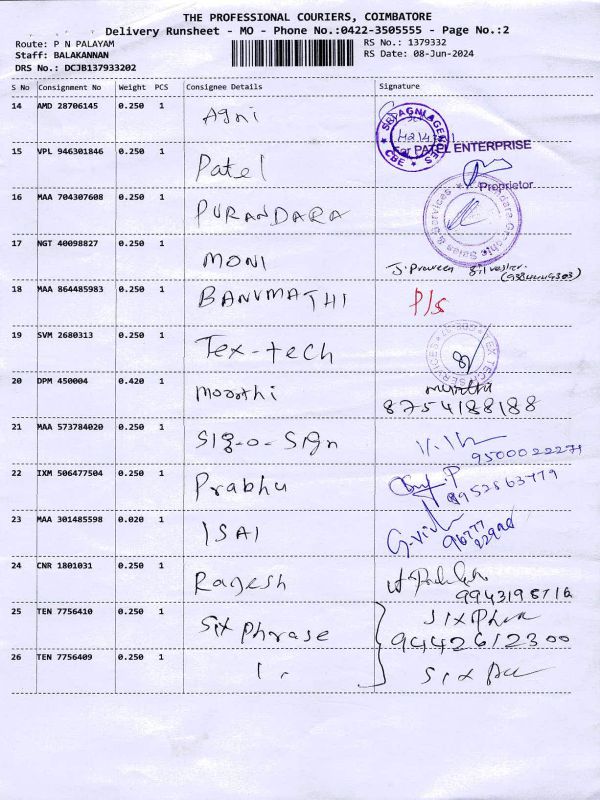 THE PROFESSIONAL COURIERS, COIMBATORE
Delivery Runsheet - MO - Phone No.:0422-3505555 - Page No.:2
Route: P N PALAYAM
RS No.: 1379332
Staff: BALAKANNAN
RS Date: 08-Jun-2024
DRS No.: DCJB137933202
S No Consignment No Weight PCS Consignee Details Signature
14 AMD 28706145 0.250 1 Agni
SRI AGNI AGENCIES CBE
15 VPL 946301846 0.250 1 Patel
For PATEL ENTERPRISE
Proprietor
16 MAA 704307608 0.250 1 PURANDARA
17 NGT 40098827 0.250 1 MONI
J. Praveen Silvester
18 MAA 864485983 0.250 1 BANUMATHI P/s
19 SVM 2680313 0.250 1 Tex-tech
TEX TECH SERVICES
20 DPM 450004 0.420 1 Moorthi
8754188188
21 MAA 573784020 0.250 1 SIg-o-Sign
9500022271
22 IXM 506477504 0.250 1 Prabhu
23 MAA 301485598 0.020 1 ISAI
24 CNR 1801031 0.250 1 Ragesh
25 TEN 7756410 0.250 1 Six Phrase
9442612300
26 TEN 7756409 0.250 1